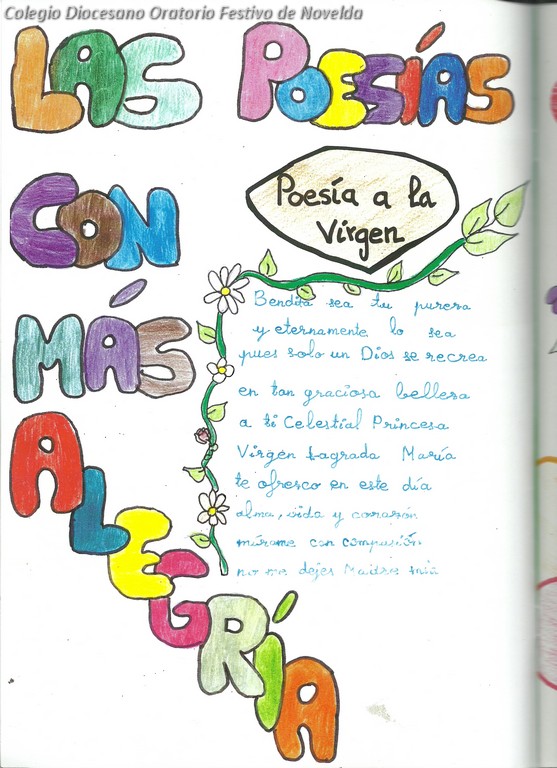 Colegio Diocesano Oratorio Festivo de Novelda
LAS POESÍAS
CON
MÁS
ALEGRÍA
Poesía a la
Virgen
Bendita sea tu puresa
y eternamente lo sea
pues solo un Dios se recrea
en tan graciosa bellesa
a ti Celestial Princesa
Virgen Sagrada María
te ofresco en este día
alma, vida y corasón
mírame con compasión
no me dejes Madre mía